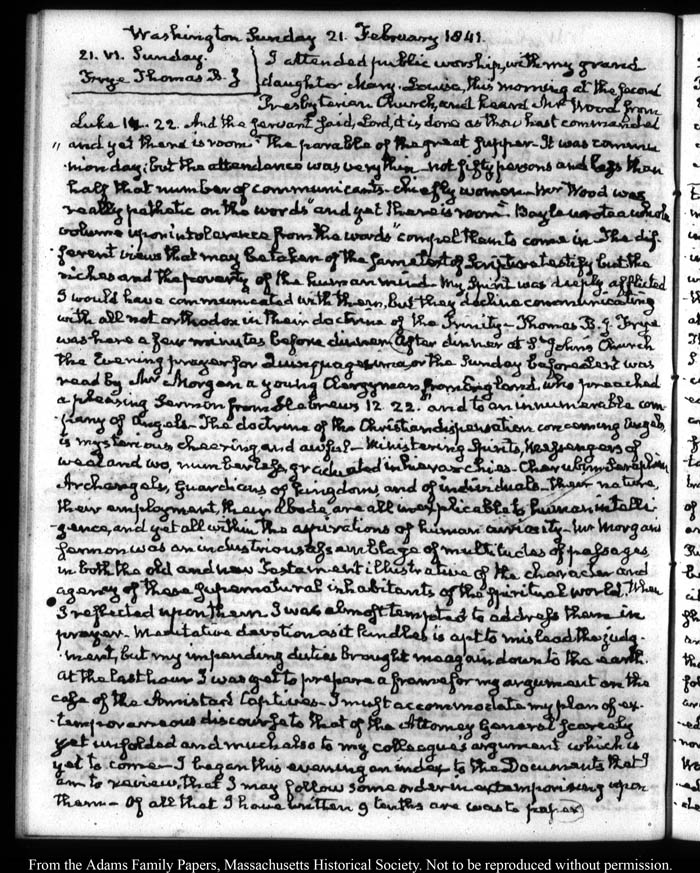 Washington Sunday 21. February 1841.
21. VI. Sunday.
Frye Thomas B. J
I attended public worship, with my grand
daughter Mary-Louisa, this morning at the second
Presbyterian Church, and heard Mr Wood from
Luke 14. 22. And the servant said, Lord, it is done as thou hast commanded
" and yet there is room" the parable of the great supper. It was commu
nion day; but the attendance was very thin—not fifty persons and less than
half that number of communicants—chiefly women—Mr Wood was
really pathetic on the words "and yet there is room". Bayle wrote a whole
volume upon intolerance from the words "compel them to come in—The dif-
ferent views that may be taken of the same text of Scripture testify but the
riches and the poverty of the human mind—My Spirit was deeply afflicted
I would have communicated with them, but they decline communicating
with all not orthodox in their doctrine of the Trinity—Thomas B. J. Frye
was here a few minutes before dinner. After dinner at St John's Church
the Evening prayer for Quinquagesima or the Sunday before Lent was
read by Mr Morgan a young Clergyman from England, who preached
a pleasing Sermon from Hebrews 12. 22. "and to an innumerable com-
pany of Angels—The doctrine of the Christian dispensation concerning Angels,
is mysterious cheering and awful—Ministering Spirits, Messengers of
weal and wo, numberless, graduated in hierarchies—Cherubim Seraphim
Archangels, Guardians of kingdoms and of individuals—their nature,
their employment, their abode, are all inexplicable to human intelli
gence, and yet all within the aspirations of human curiosity—Mr Morgan's
Sermon was an industrious assemblage of multitudes of passages
in both the old and new Testament illustrative of the character and
agency of these supernatural inhabitants of the spiritual world. When
I reflected upon them I was almost tempted to address them in
prayer—Meditative devotion as it kindles is apt to mislead the judg-
ment, but my impending duties brought me again down to the earth.
At the last hour I was yet to prepare a frame for my argument on the
case of the Amistad Captives—I must accommodate my plan of ex-
temporaneous discourse to that of the Attorney General scarcely
yet unfolded and much also to my colleague's argument which is
yet to come—I began this evening an index to the Documents that I
am to review, that I may follow some order in extemporising upon
them—Of all that I have written 9 tenths are waste paper
From the Adams Family Papers, Massachusetts Historical Society. Not to be reproduced without permission.